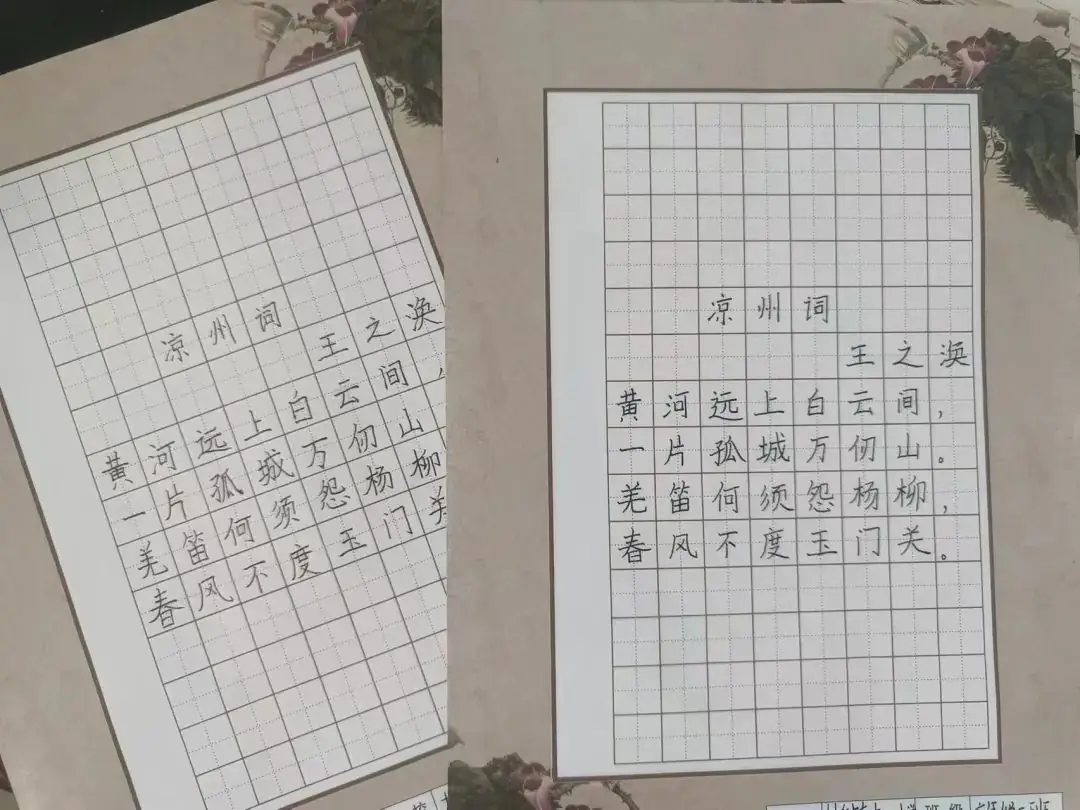 凉州词
王之涣
黄河远上白云间,
一片孤城万仞山
羌笛何须怨杨柳
春风不度玉门关
凉州词
王之涣
黄河远上白云间,
一片孤城万仞山。
羌笛何须怨杨柳,
春风不度玉门关。
班级